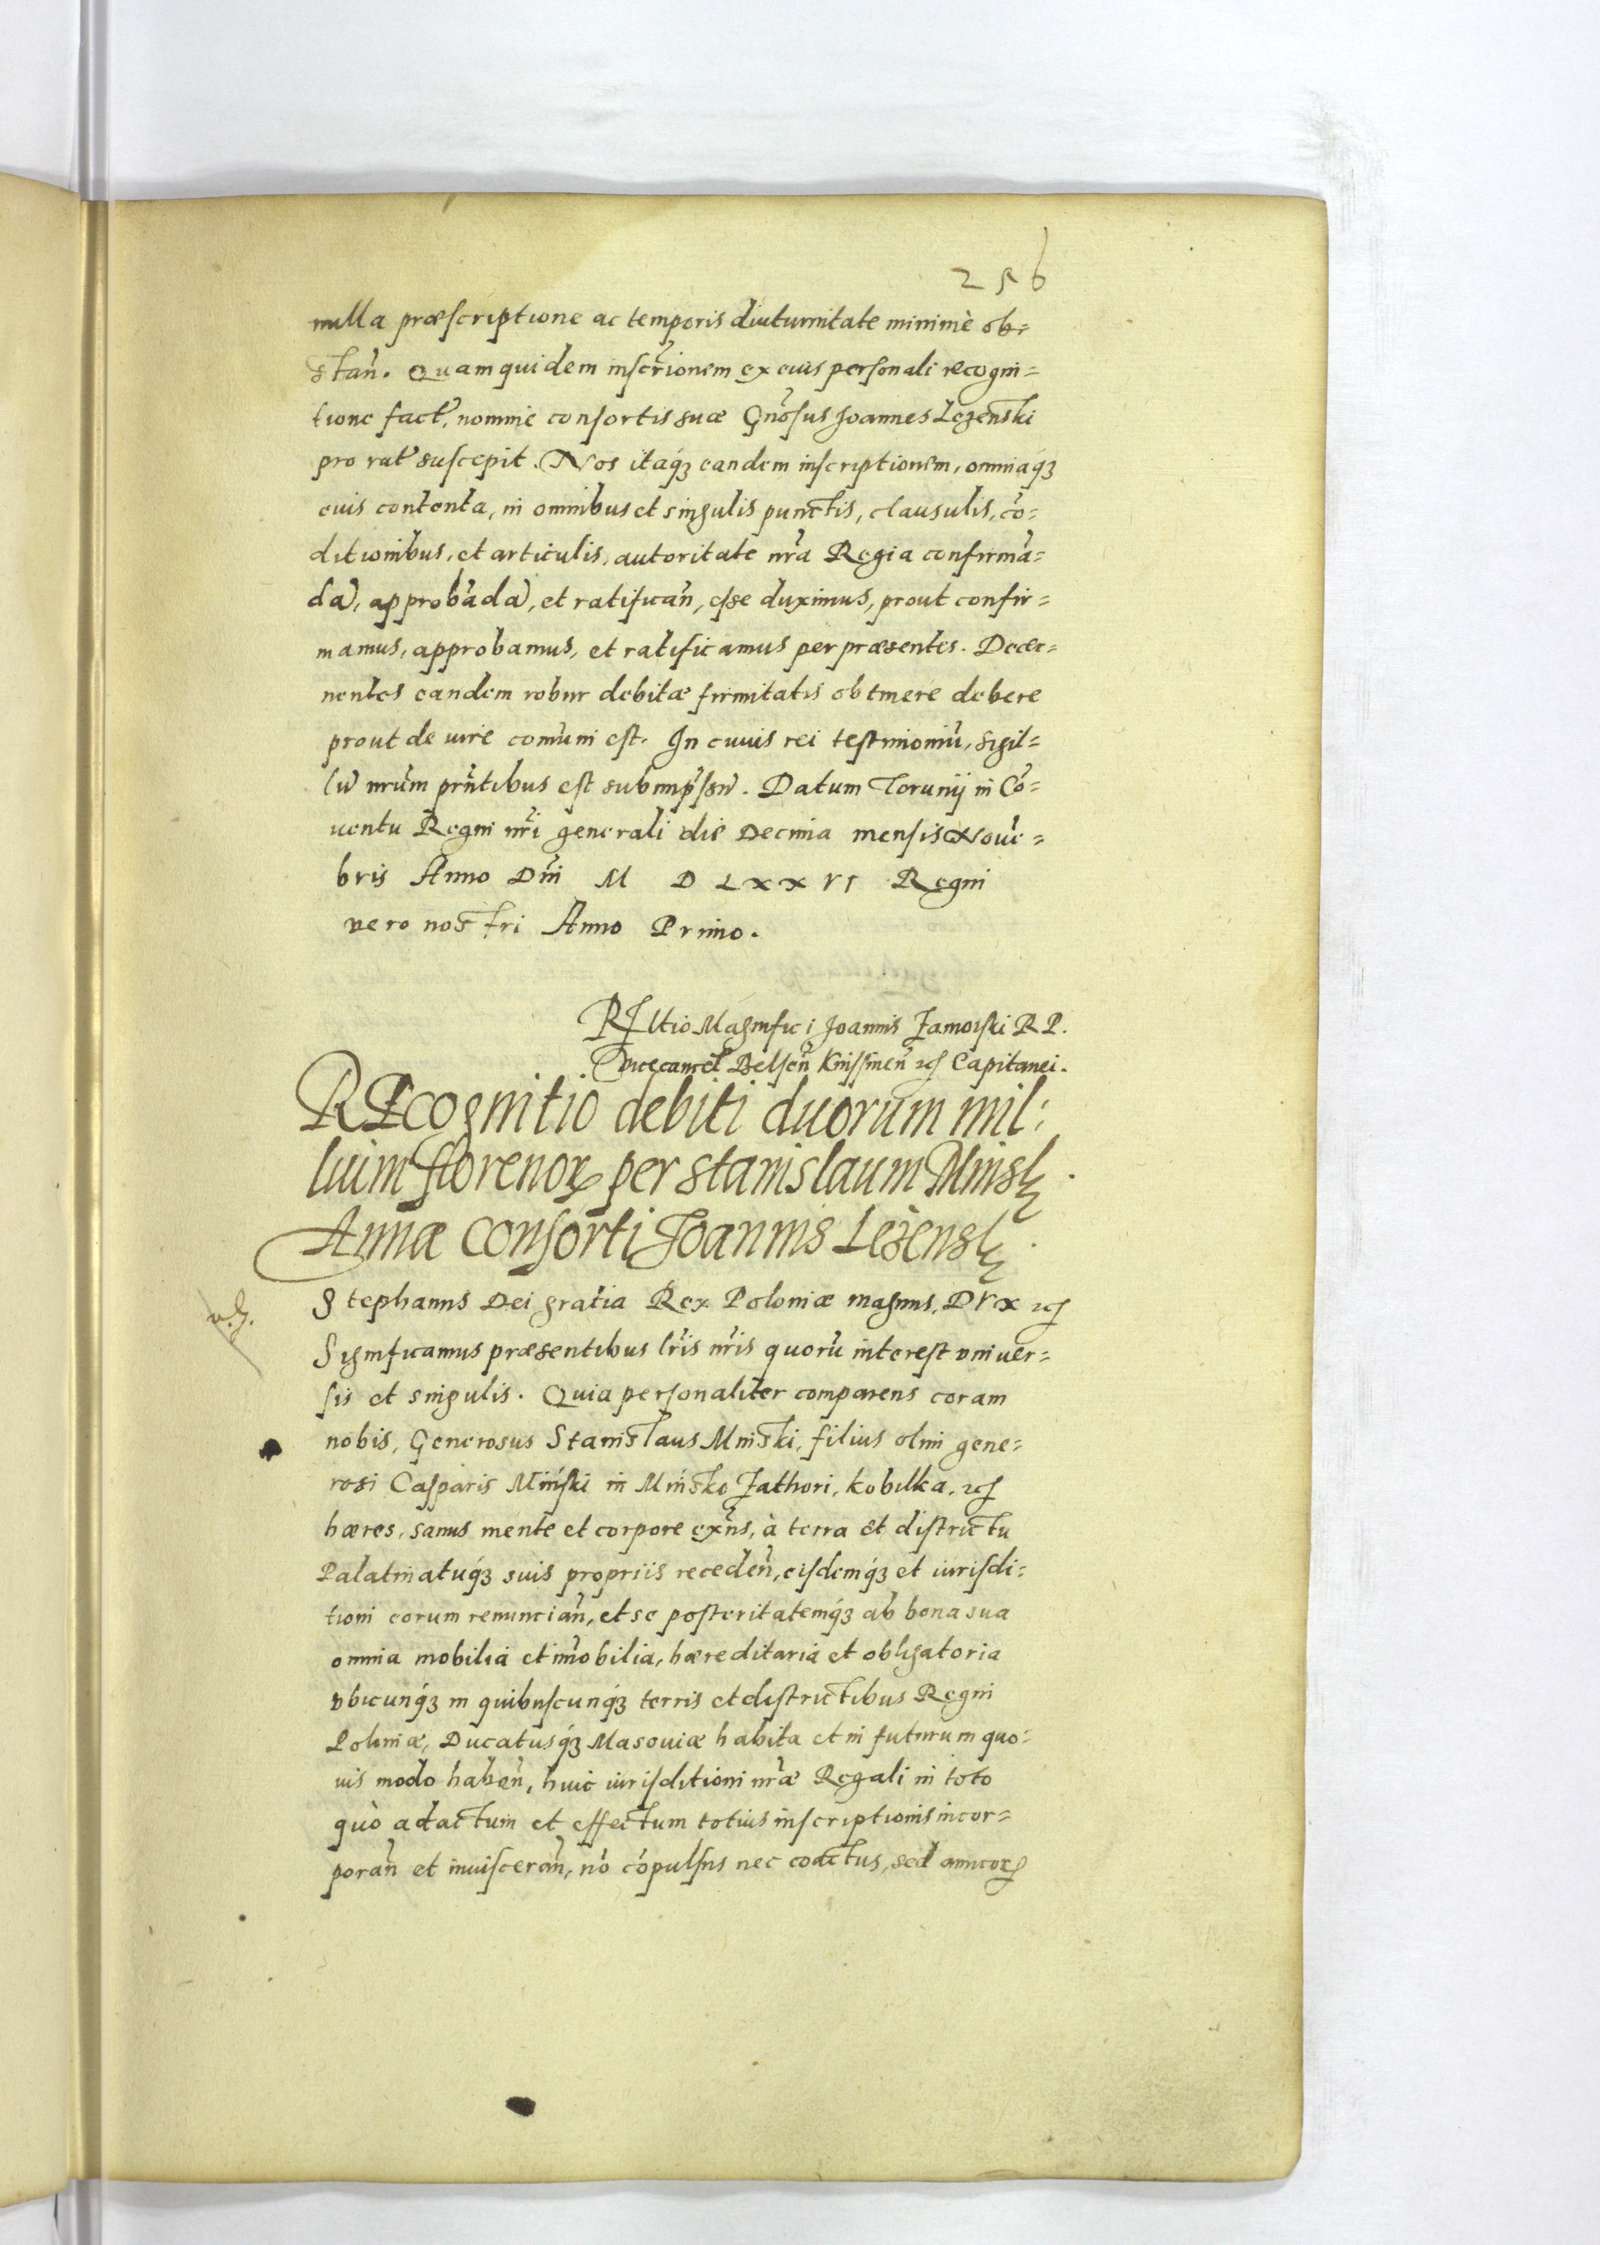 256
nulla præscriptione ac temporis diuturnitate minimè ob=
stan̄. Quam quidem inscr̄ionem ex eius personali recogni=
tione fact̄, nomine consortis suæ Gn̄osus Joannes Lezenski
pro rat̄ suscepit. Nos itaq́ꝫ eandem inscriptionem, omniaq́ꝫ
euis contenta, in omnibus et singulis punctis, clausulis, cō=
ditionibus, et articulis, autoritate nr̄a Regia confirmā=
da͂, approbāda͂, et ratifican̄, esse duximus, prout confir=
mamus, approbamus, et ratificamus per præsentes. Decer=
nentes eandem robur debitæ firmitatis obtinere debere
prout de iure comūni est. In cuius rei testimoniū, sigil=
lū nrūm prn̄tibus est subimp̄ssū. Datum Torunij in Cō=
uentu Regni nr̄i generali die Decima mensis Noue=
bris Anno Dn̄i M D LXXVI Regni
vero nostri Anno Primo.
REltio Magnifici Joannis Zamoiski R P.
Vicecancel̄ Belsen̄ Knissinen̄ ꝛc̄ Capitanei.
REcognitio debiti duorum mil:
lium florenoꝝ per Stanislaum Minsk.
Annæ consorti Joannis Leżensk.
Stephanus Dei gratia Rex Poloniæ magnus, DVX ꝛc̄
Significamus præsentibus lr̄is nr̄is quorū interest vniuer=
sis et singulis. Quia personaliter comparens coram
nobis, Generosus Stanislaus Minski, filius olim gene=
rosi Casparis Miński in Mińsko Zathori, kobilka, ꝛc̄
hæres, sanus mente et corpore exn̄s, à terra et districtu
Palatinatuq́ꝫ suis propriis receden̄, eisdemq́ꝫ et iurisdi=
tioni eorum renuncian̄, et se posteritatemq́ꝫ ab bona sua
omnia mobilia et im̄obilia, hæreditaria et obligatoria
vbicunq́ꝫ in quibuscunq́ꝫ terris et districtibus Regni
Poloniæ, Ducatusq́ꝫ Masouiæ habita et in futurum quo=
uis modo haben̄, huic iurisditioni nr̄æ Regali in toto
quò ad actum et effectum totius inscriptionis incor=
poran̄ et inuisceran̄, nō cōpulsus nec coactus, sed amicoꝝ